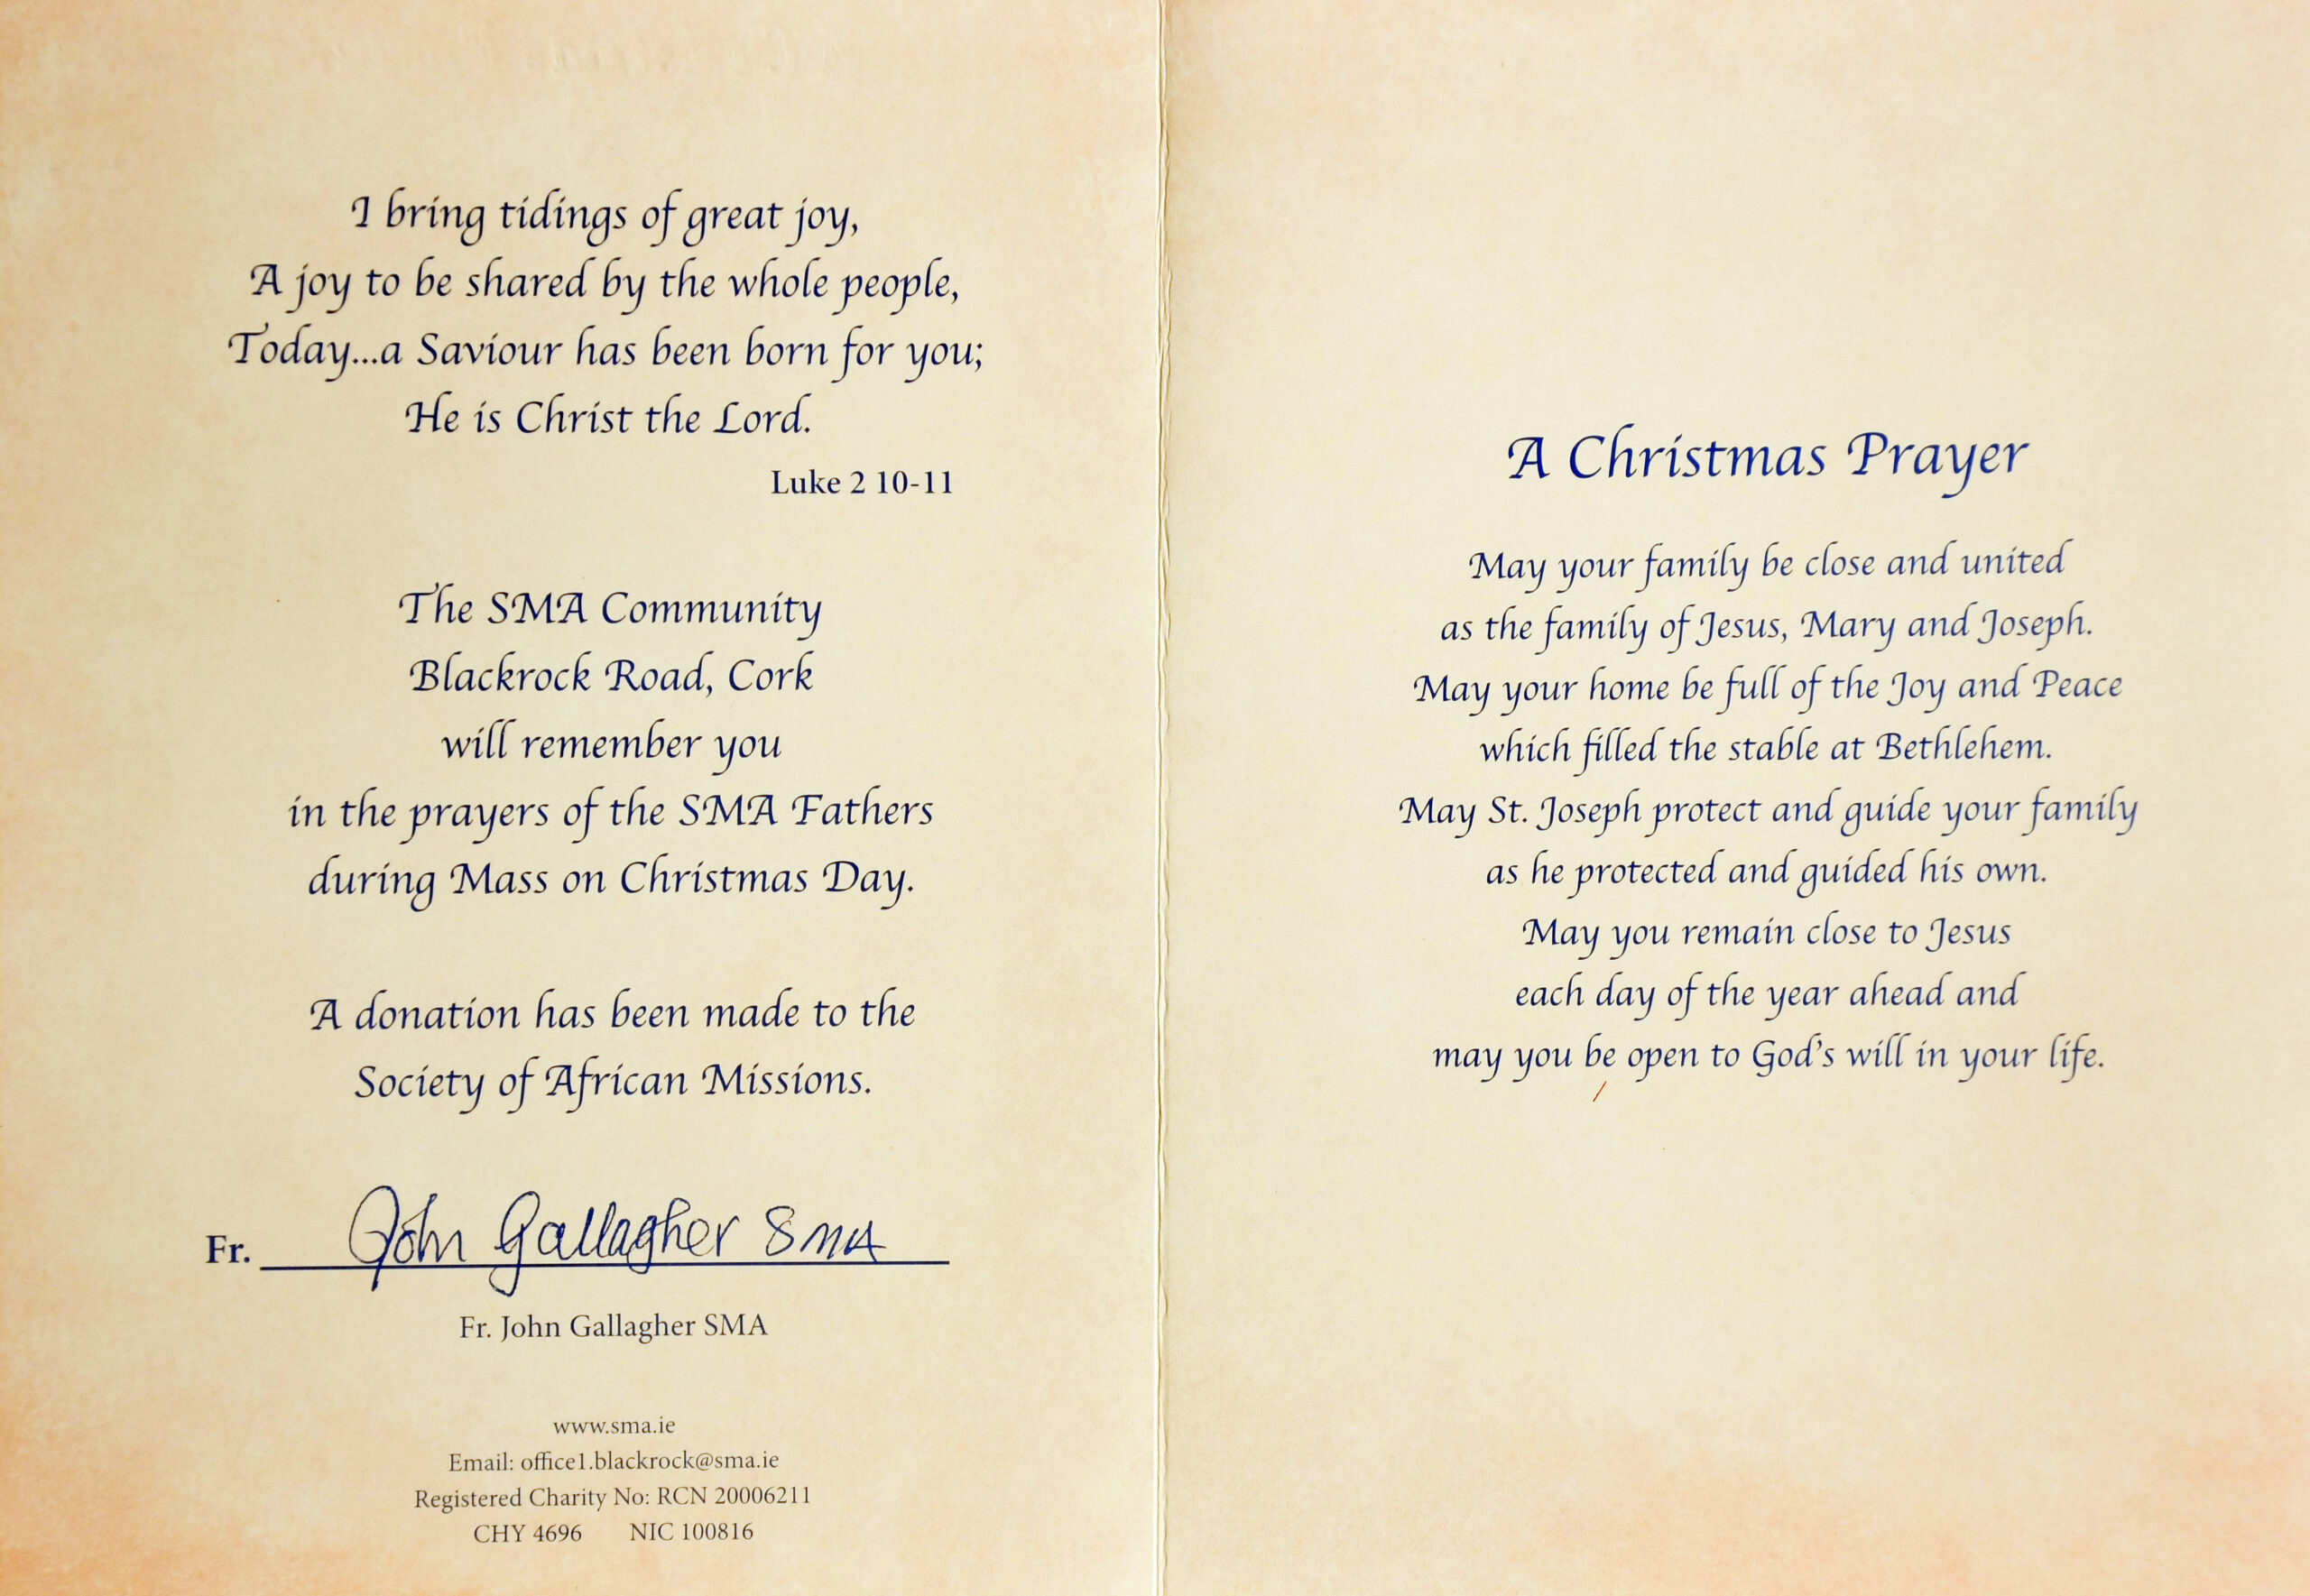 I bring tidings of great joy,
A joy to be shared by the whole people,
Today...a Saviour has been born for you;
He is Christ the Lord.
Luke 2 10-11
The SMA Community
Blackrock Road, Cork
will remember you
in the prayers of the SMA Fathers
during Mass on Christmas Day.
A donation has been made to the
Society of African Missions.
Fr. John Gallagher SMA
Fr. John Gallagher SMA
www.sma.ie
Email: office1.blackrock@sma.ie
Registered Charity No: RCN 20006211
CHY 4696 NIC 100816
A Christmas Prayer
May your family be close and united
as the family of Jesus, Mary and Joseph.
May your home be full of the Joy and Peace
which filled the stable at Bethlehem.
May St. Joseph protect and guide your family
as he protected and guided his own.
May you remain close to Jesus
each day of the year ahead and
may you be open to God's will in your life.